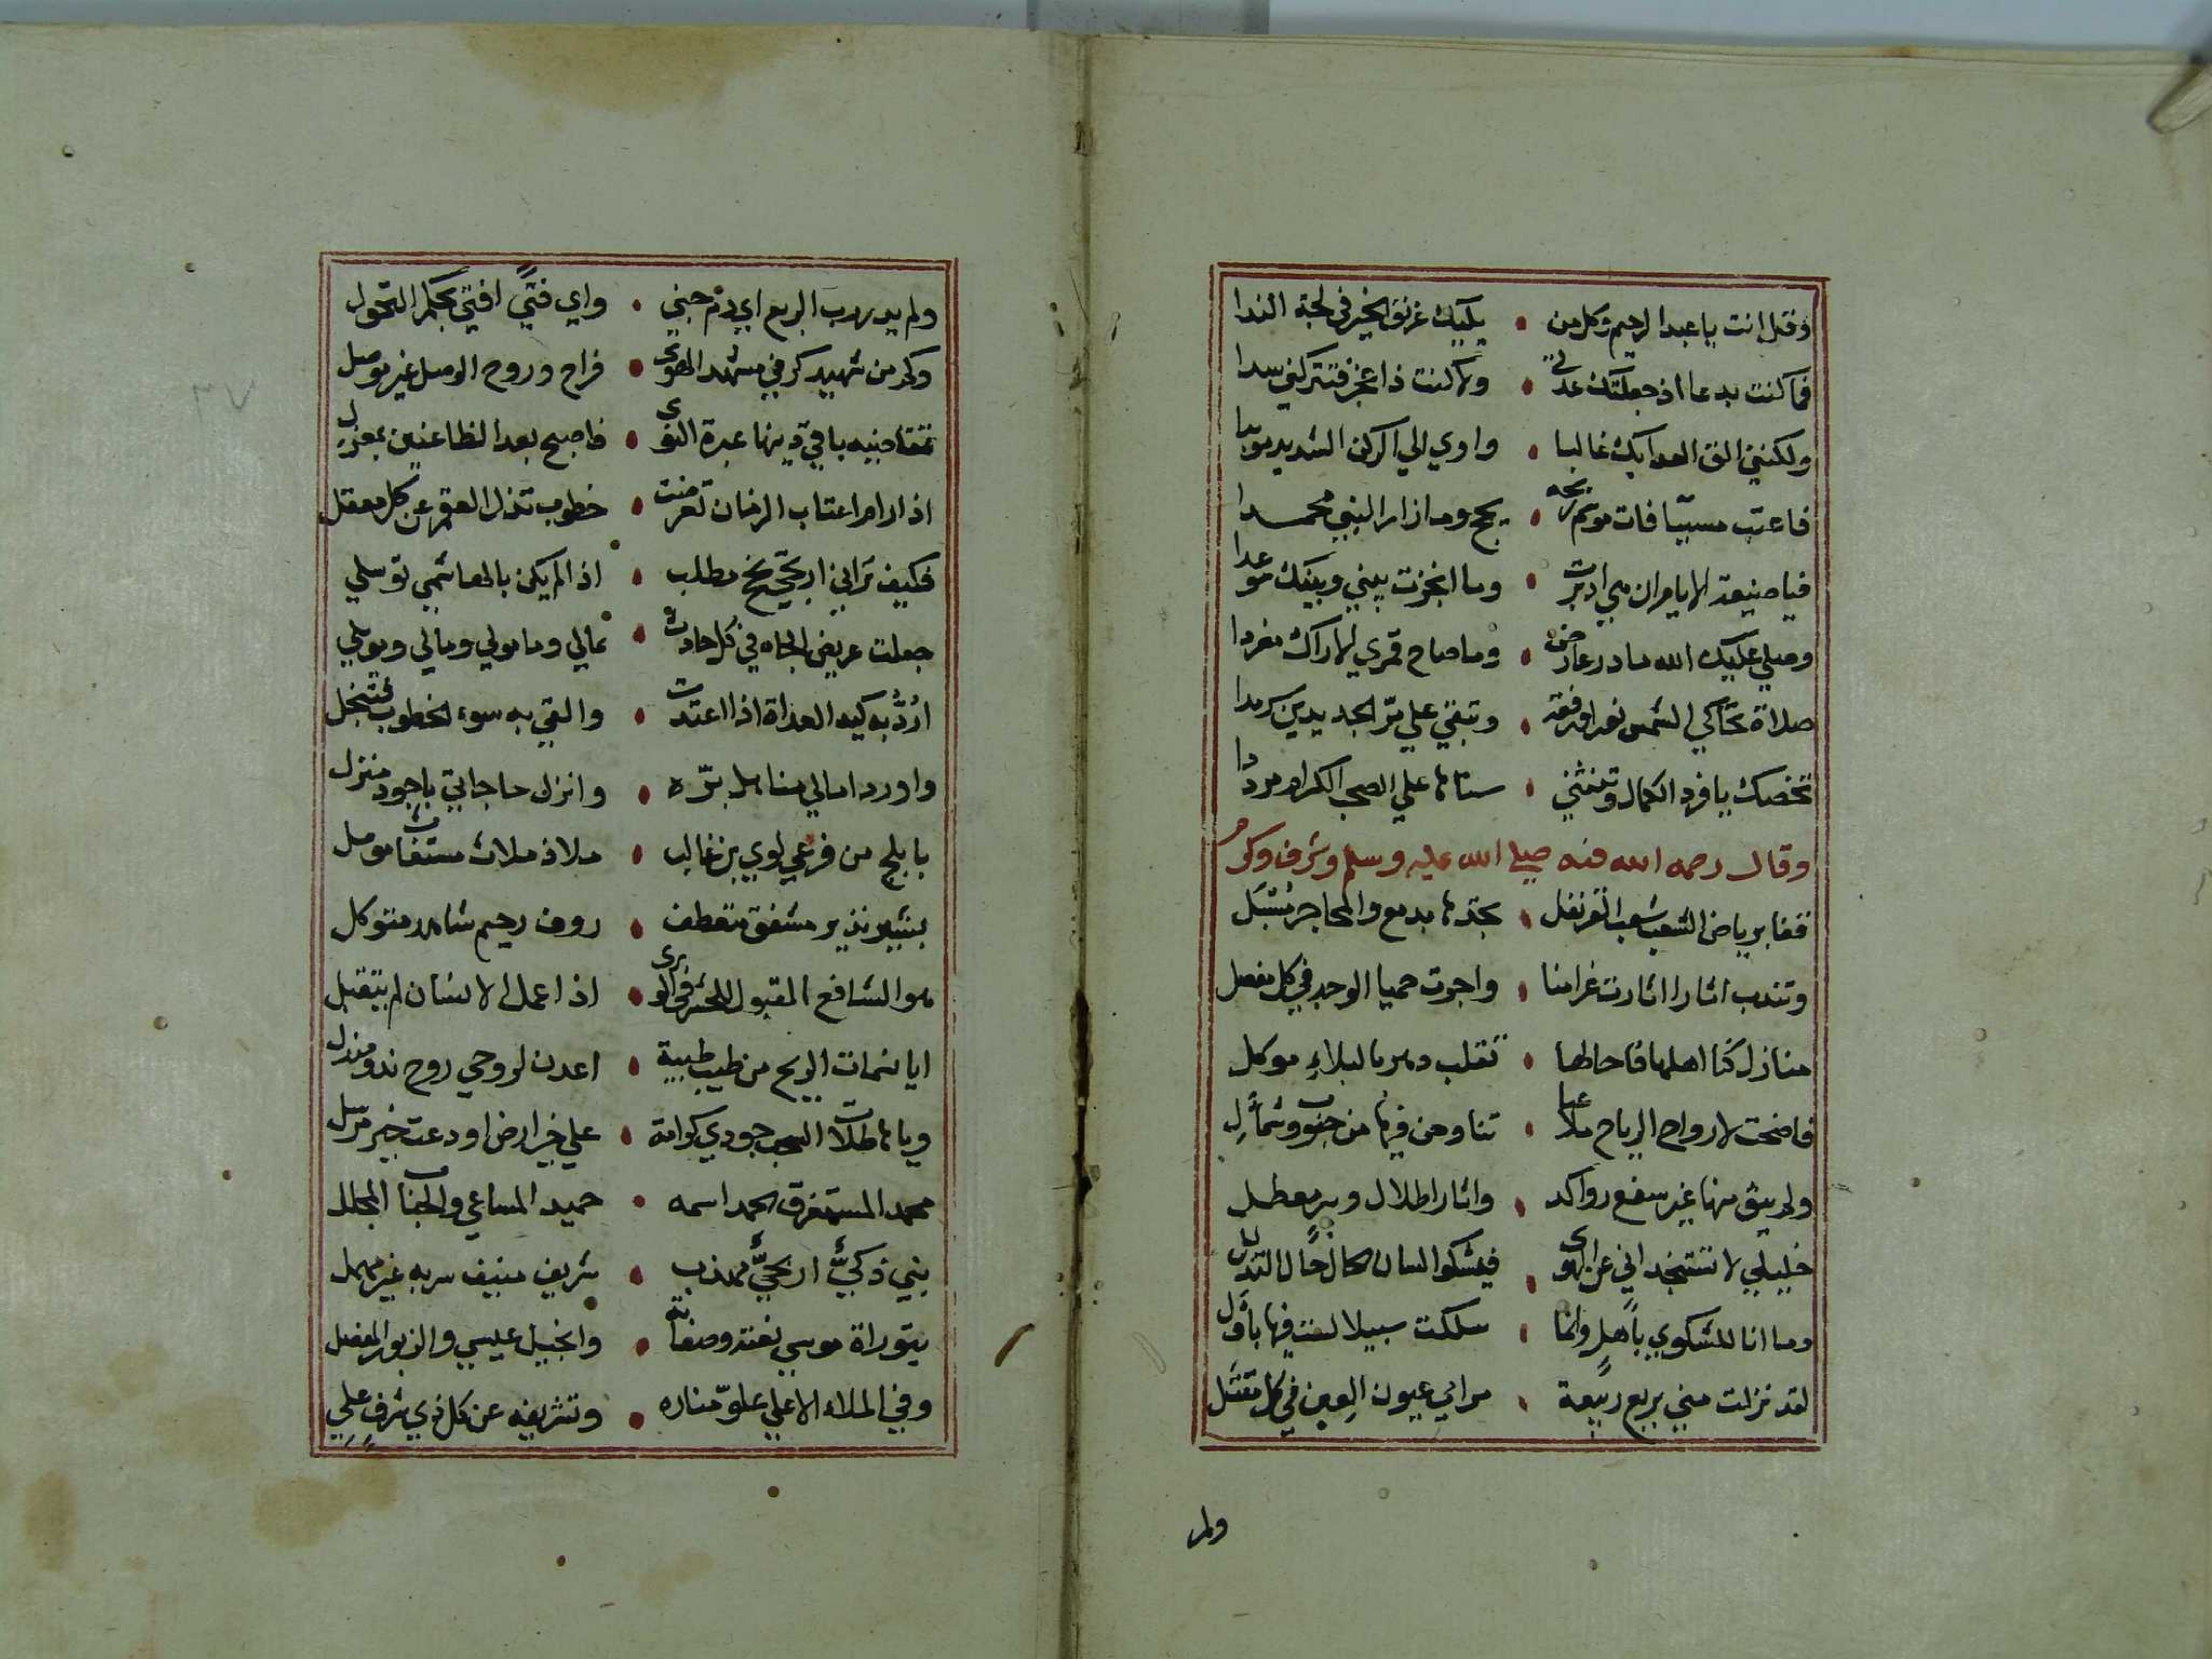 وقل انت يا عبد الرحيم وكل من • يليك غريق الخير في لجة الندا
فما كنت بدعا اذ جعلتك عدتي • ولا كنت ذا عجز فتتركني سدا
ولكنني الق العدا بك غالبا • واوي الي الركن الشديد مويدا
فاعتب مسيّا فات موسم حجه • بحج وما زار النبي محمدا
فيا ضيعة الايام ان هي ادبرت • وما انجزت بيني وبينك موعدا
وصلي عليك الله ما در عارض • وما صاح قمري الاراك مغردا
صلاة تحاكي الشمس نورا ورفعة • وتبقي علي مرّ الجديدين سرمدا
تخصك يا فرد الكمال وتنثني • سناها علي الصحب الكرام مرددا
وقال رحمه الله فيه صلى الله عليه وسلم وشرف وكرم
قفا برياض الشعب شعب القرنفل • نجدها بدمع والمحاجر مسبل
وتندب اثارا اثارت غرامنا • واجرت حميا الوجد في كل مفصل
منازل كنا اهلها فاحالها • تقلب دهر بالبلاء موكل
فاضحت لارواح الرياح ملاعبا • تناوحن فيها من جنوب وشمأل
ولم يبق منها غير سفع رواكد • واثار اطلال وبير معطل
خليلي لا تستنجداني عن الهوى • فيشكوا لسان الحال حال التذلل
وما انا للشكوي باهل وانما • سلكت سبيلا لست فيها باول
لقد نزلت مني بربع ربيعة • مراي عيون العين في كل مقتل
ولم
ولم يدر يهرب الربع اي دم جني • واي فتىً افتي بحكم التحول
وكم من شهيد كر في مشهد الهوى • فراح وروح الوصل غير موصل
تقاضيه باقي دينها عبرة النوى • فاصبح بعد الظاعنين بمعزل
اذا رام اعتاب الزمان تعرضت • خطوب تذل العقم عن كل معقل
فكيف تراني ارتجي نجح مطلب • اذا لم يكن بالهاشمي توسلي
جعلت عريض الجاه في كل حادث • ثمالي وماموني ومالي وموئلي
اردّ به كيد العداة اذا اعتدت • والقي به سوء الخطوب فتنجل
واورد امالي مناهل برّه • وانزل حاجاتي باجود منزل
بابلج من فرعي لوي بن غالب • ملاذ ملاث مستغاث موصل
بشير نذير مشفق متعطف • روف رحيم شاهد متوكل
هو الشافع المقبول للحشر في الورى • اذا عمل الانسان لم يتقبل
ايا نسمات الريح من طيب طيبة • اعدن لروحي روح ند ومندل
ويا هاطلات السحب جودي كرامة • علي خير ارض اودعت خير مرسل
محمد المستغرق الحمد اسمه • حميد المساعي والجناب المجلل
نبي زكيّ اريحيّ مهذب • شريف منيف سربه غير مهمل
بتوراة موسي نعته وصفاته • وانجيل عيسي والزبور المفصل
وفي الملاء الاعلي علوّ مناره • وتشريفه عن كل ذي شرف علي